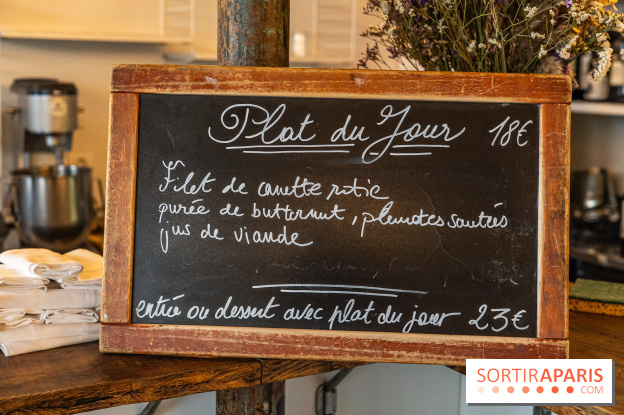 Plat du Jour 18€
Filet de canette rotie
purée de butternut, pleurotes sautés
jus de viande
entrée ou dessert avec plat du jour 23€
SORTIRAPARIS
.COM